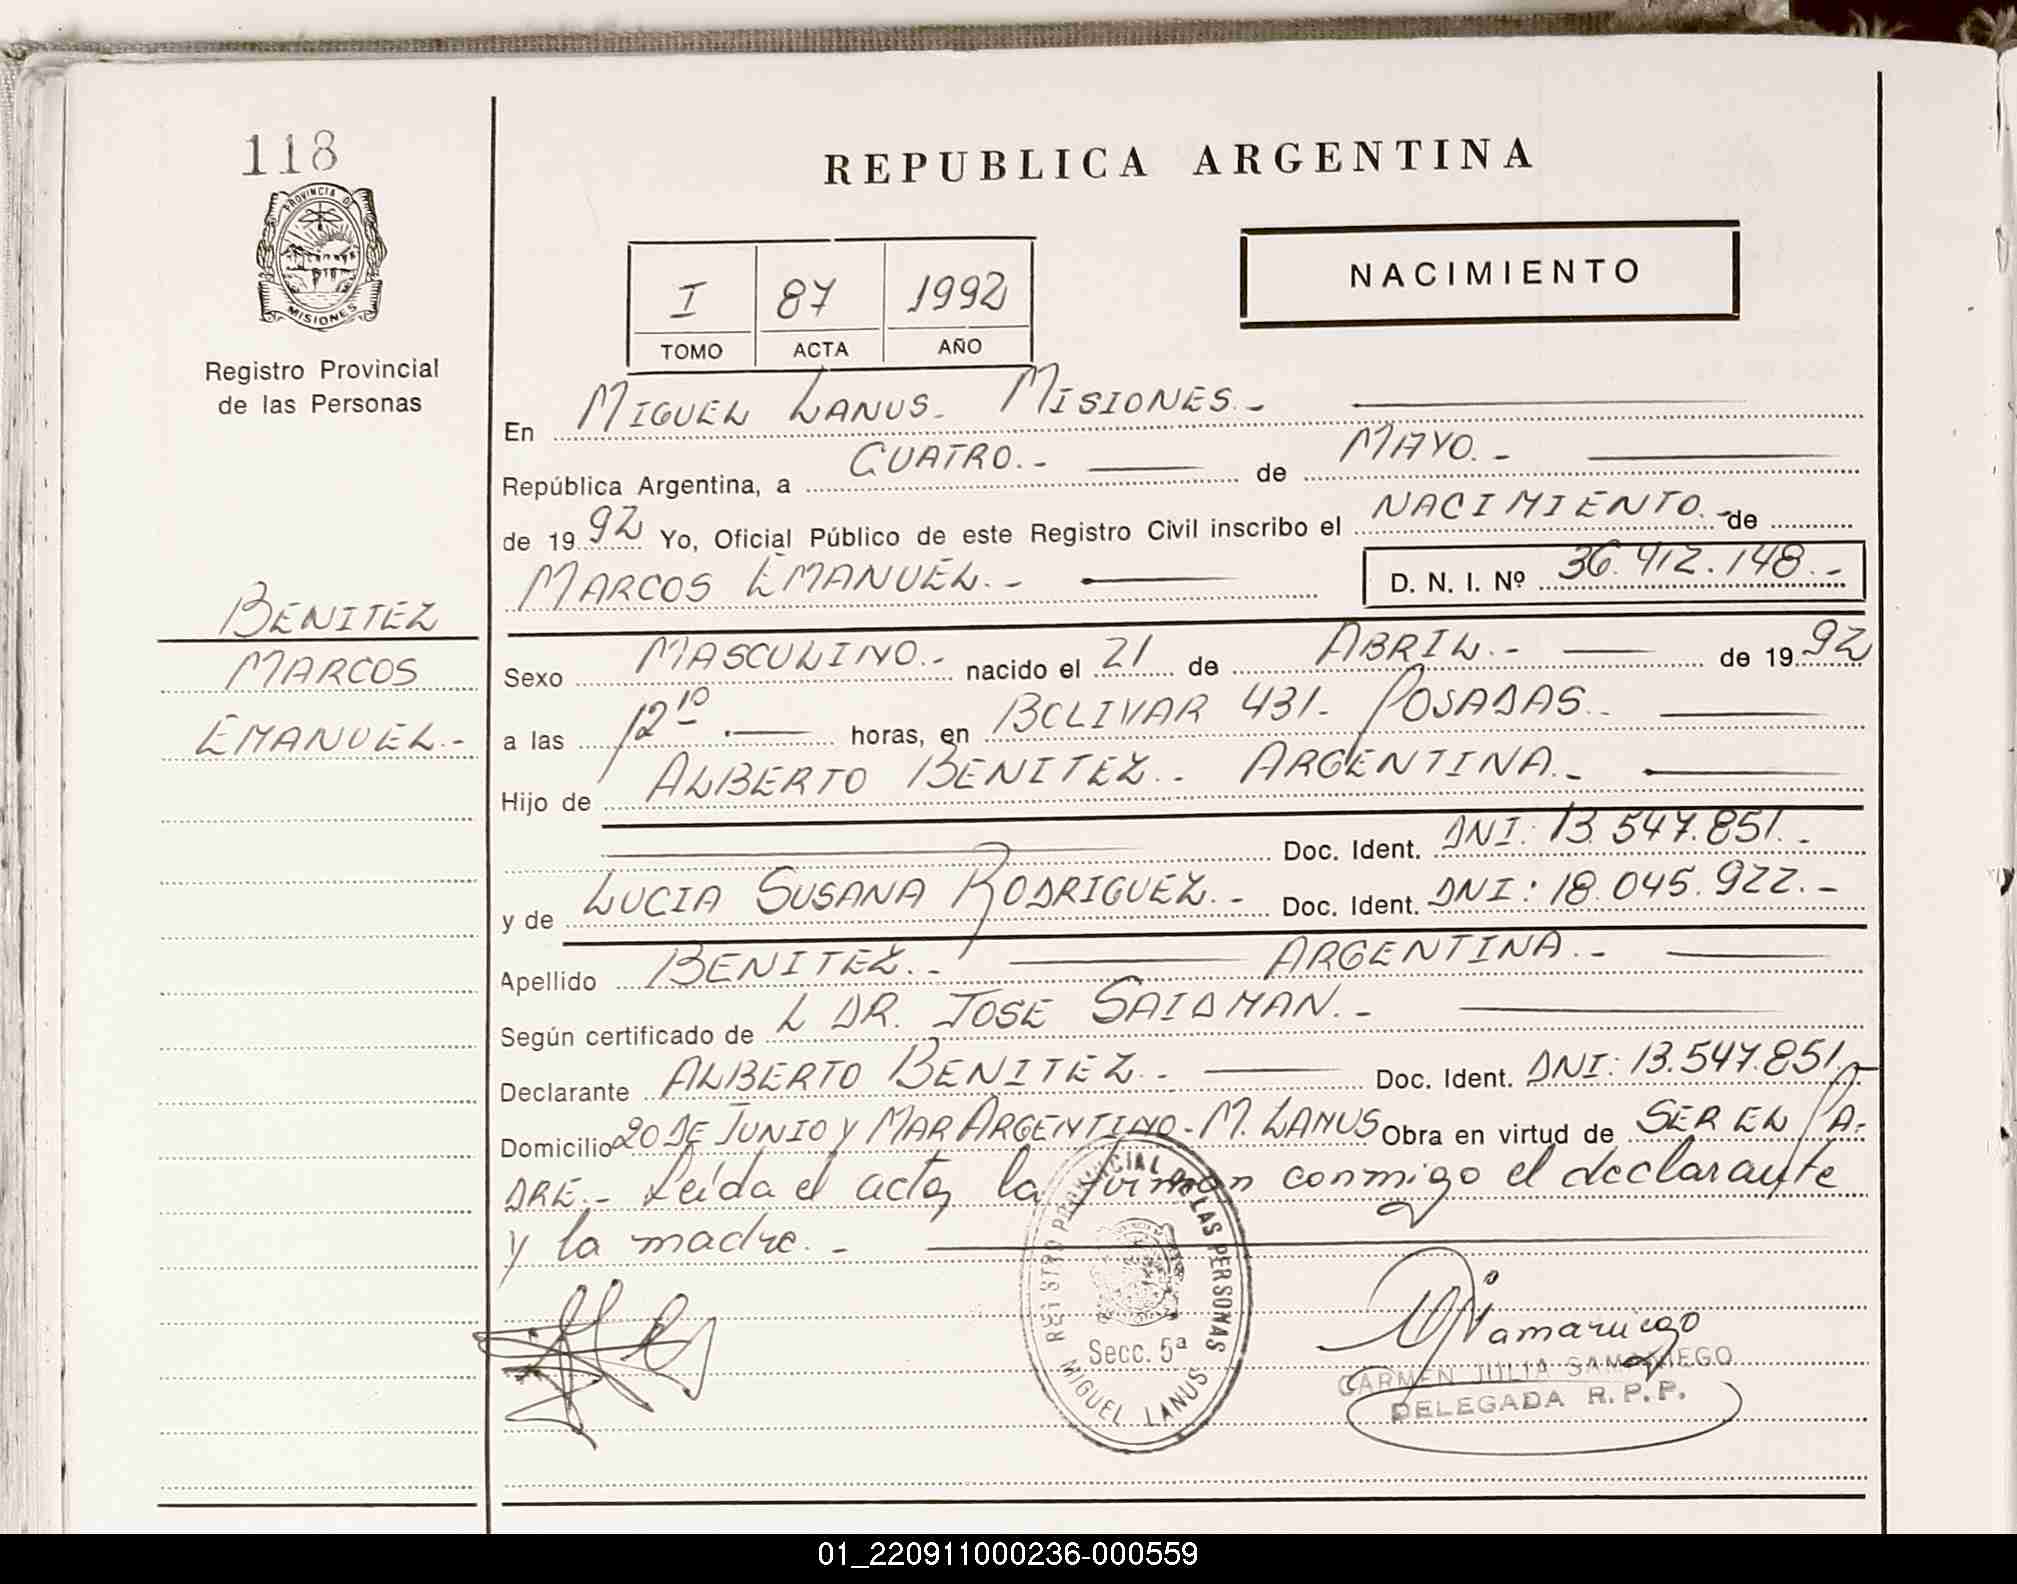 118
PROVINCIA DE
MISIONES
Registro Provincial
de las Personas
BENITEZ
MARCOS
EMANUEL.-
REPUBLICA ARGENTINA
I 87 1992
TOMO ACTA AÑO
NACIMIENTO
En MIGUEL LANUS. MISIONES.-
República Argentina, a CUATRO.- de MAYO.-
de 1992 Yo, Oficial Público de este Registro Civil inscribo el NACIMIENTO.- de
MARCOS EMANUEL.- D. N. I. Nº 36.412.148.-
Sexo MASCULINO.- nacido el 21 de ABRIL.- de 1992
a las 12 10 .- horas, en BOLIVAR 431. POSADAS.-
Hijo de ALBERTO BENITEZ.- ARGENTINA.-
Doc. Ident. DNI: 13.547.851.-
y de LUCIA SUSANA RODRIGUEZ.- Doc. Ident. DNI: 18.045.922.-
Apellido BENITEZ.- ARGENTINA.-
Según certificado de L DR. JOSE SAIDMAN.-
Declarante ALBERTO BENITEZ.- Doc. Ident. DNI: 13.547.851.-
Domicilio 20 DE JUNIO Y MAR ARGENTINO - M. LANUS Obra en virtud de SER EL PA-
DRE.- Leída el acta, la firman conmigo el declarante
y la madre.-
REGISTRO PROVINCIAL DE LAS PERSONAS
Secc. 5ª
MIGUEL LANUS
CARMEN JULIA SAMANIEGO
DELEGADA R.P.P.
01_220911000236-000559